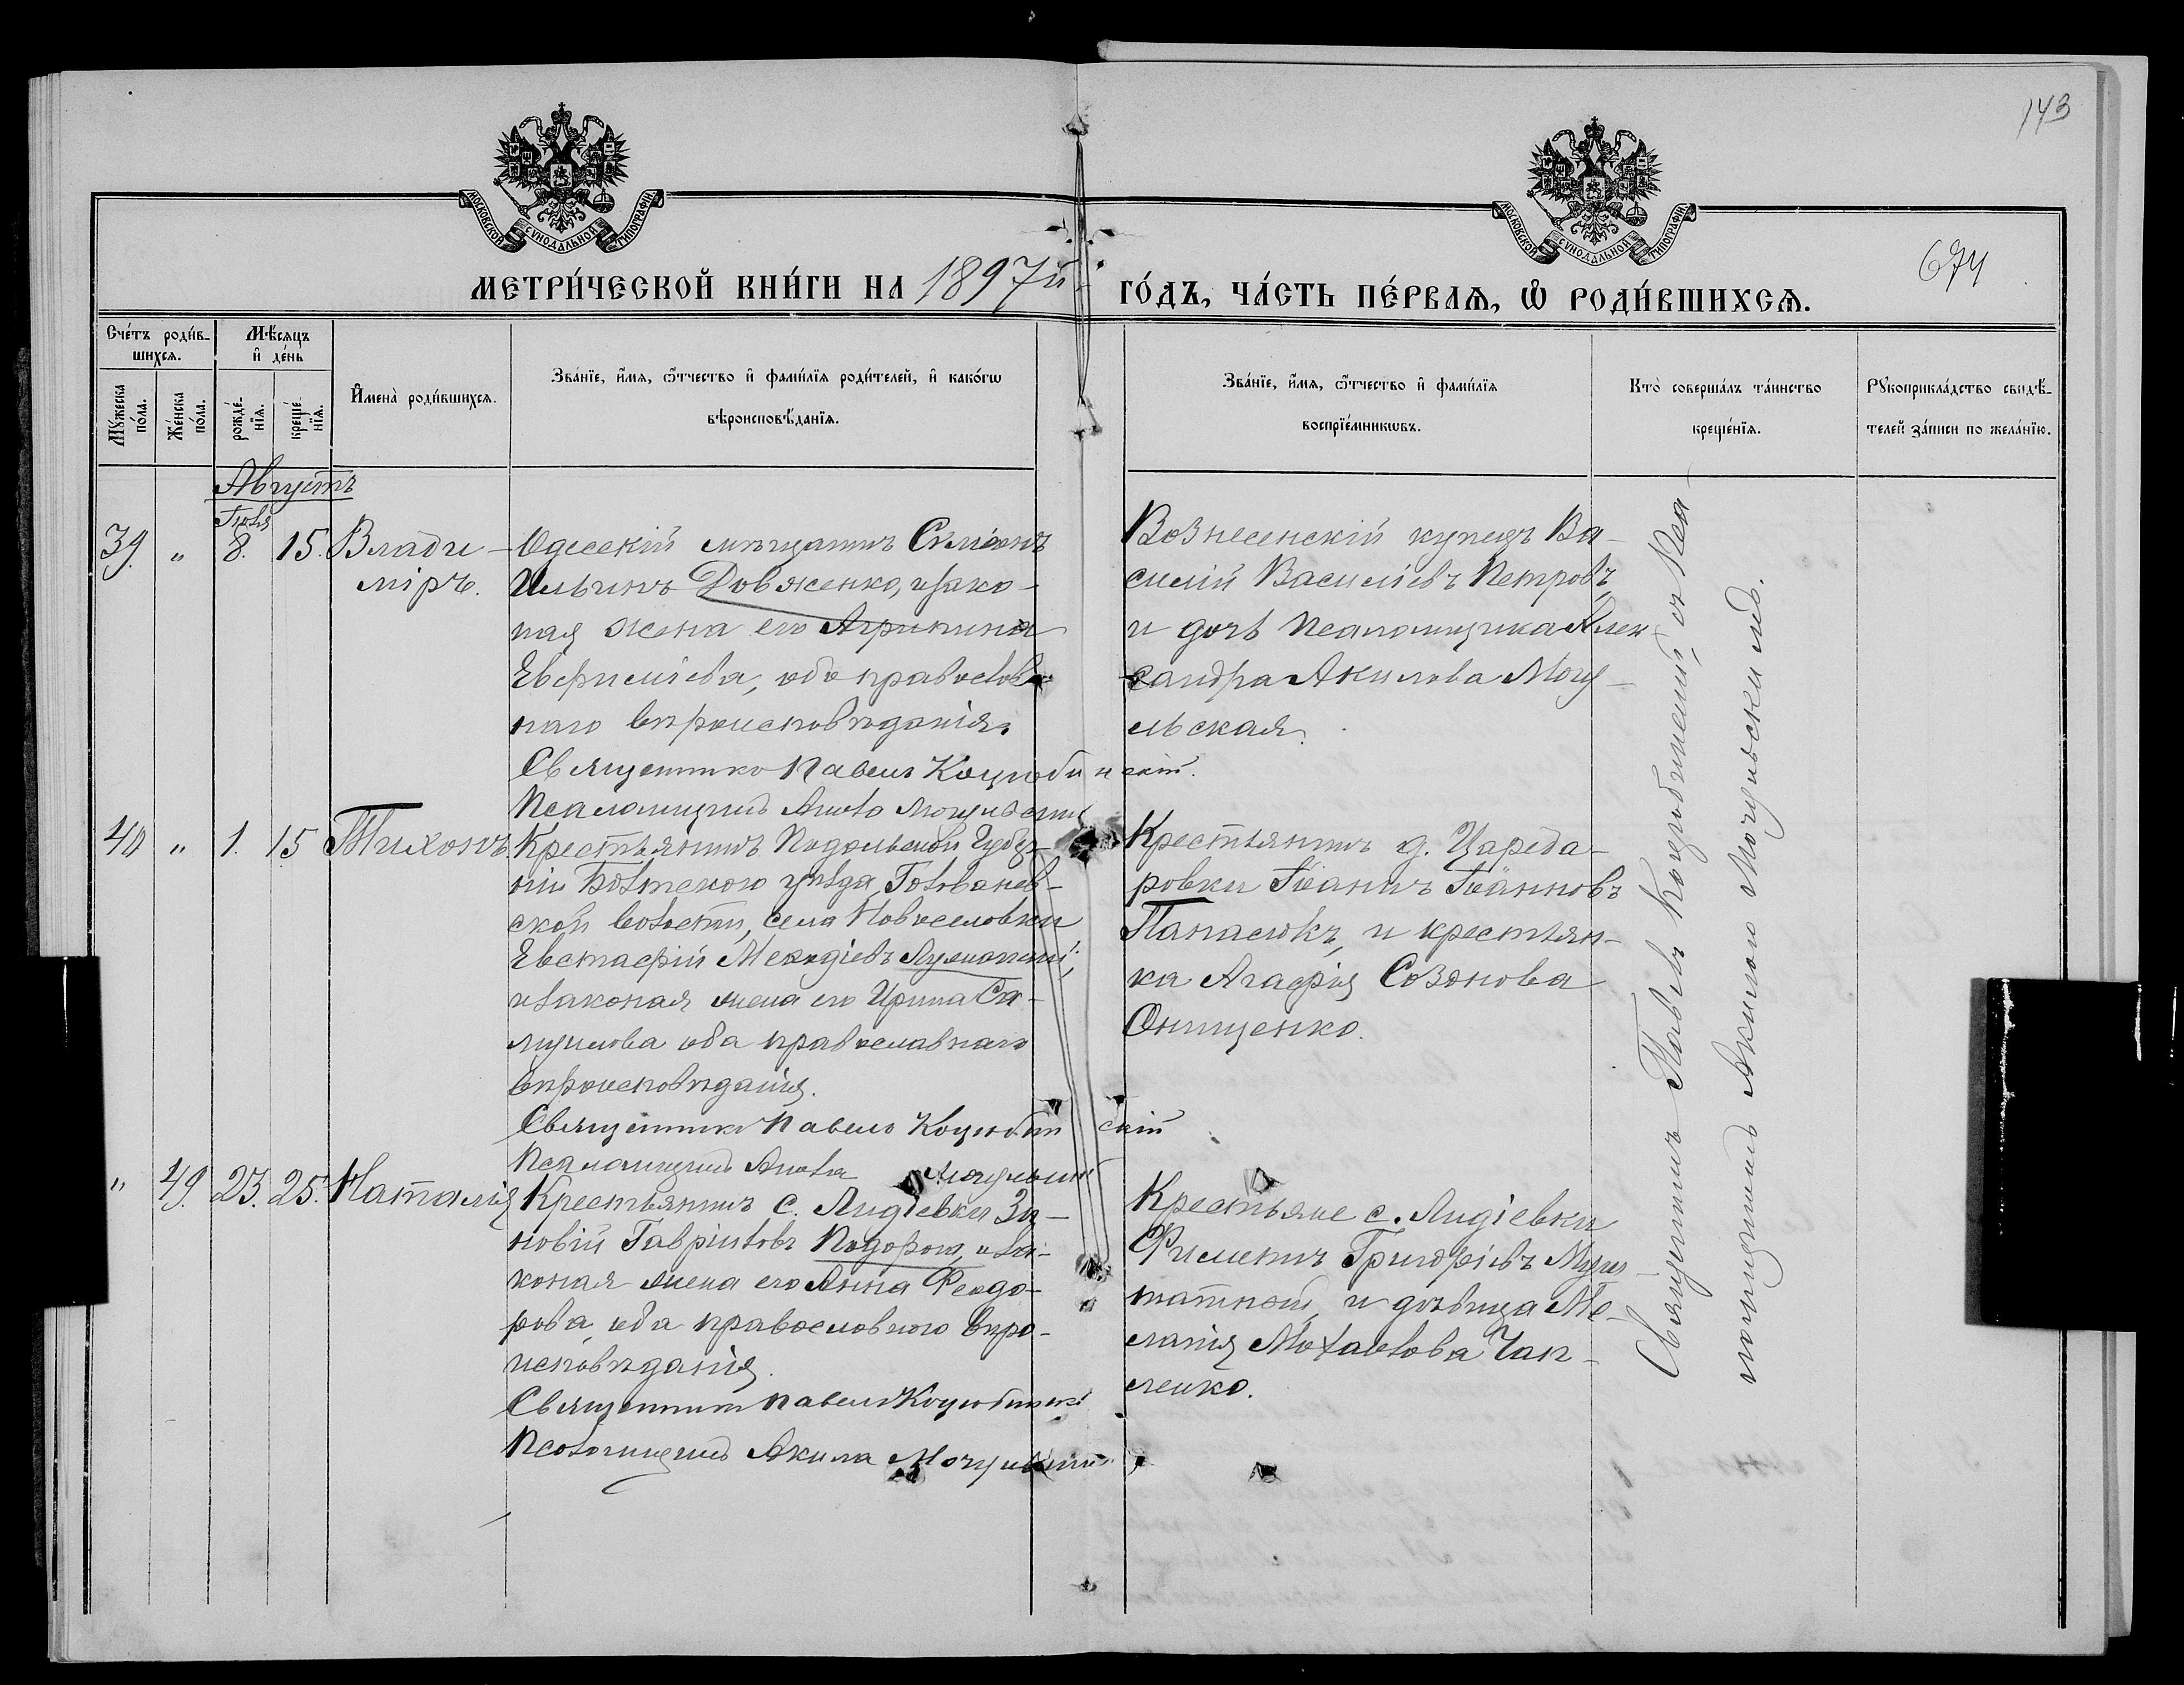 143
МОСКОВСКОЙ СУНОДАЛЬНОЙ ТИПОГРАФІИ.
МОСКОВСКОЙ СУНОДАЛЬНОЙ ТИПОГРАФІИ.
674
МЕТРИ́ЧЕСКОЙ КНИ́ГИ НА 1897й
ГО́ДЪ, ЧА́СТЬ ПЕ́РВАѦ, Ѡ҆ РОДИ́ВШИХСѦ.
Сче́тъ роди́в-
шихсѧ.
Мѣ́сяцъ
и҆ де́нь
Мꙋ́жеска
по́ла.
Же́нска
по́ла.
рожде́-
нїѧ.
креще́-
нїѧ.
И҆мена̀ роди́вшихсѧ.
Зва́нїе, и҆́мѧ, ѻ҆́тчество и҆ фами́лїѧ роди́телей, и҆ како́гѡ
вѣроисповѣ́данїѧ.
Зва́нїе, и҆́мѧ, ѻ҆́тчество и҆ фами́лїѧ
воспрїе́мникѡвъ.
Кто̀ соверша́лъ та́инство
креще́нїѧ.
Рꙋкоприкла́дство свидѣ́-
телей за́писи по жела́нїю.
Августъ
Іюля
39. " 8. 15. Влади-
міръ.
Одесскій мѣщанинъ Симеонъ
Ильинъ Довженко, и зако-
ная жена его Агрипина
Евфиміева, оба православ
наго вѣроисповѣданія.
Священникъ Павелъ Коцюбинскій.
Псаломщикъ Акила Могульскій
Вознесенскій купецъ Ва-
силій Василіевъ Петровъ,
и дочь псаломщика Алек
сандра Акилова Могу-
льская.
40 " 1. 15 Тихонъ.
Крестьянинъ Подольской Губер-
ніи Болтского уѣзда, Голованев-
ской волости, села Новоселовки
Евстафій Меѳодіевъ
и законая жена его Ирина Са-
муилова оба православнаго
вѣроисповѣданія.
Священникъ Павелъ Коцюбинскій
Псаломщикъ Акила Могульскій
Крестьянинъ д. Цареда-
ровки Іоаннъ Іоанновъ
Панасюкъ, и крестьян-
ка Агафія Созонова
Онищенко.
" 49. 23. 25. Наталія
Крестьянинъ с. Лидіевки Зи-
новій Гавріиловъ Подорога, и за-
коная жена его Анна Феодо-
рова, оба православного вѣро-
исповѣданія.
Священникъ Павелъ Коцюбинскій
Псаломщикъ Акила Могульскій
Крестьяне с. Лидіевки
Филиппъ Григоріевъ
и дѣвица Ме-
ланія Михайлова Чап-
ленко.
Священникъ Павелъ Коцюбинскій, съ Пса
ломщикомъ Акилою Могульскимъ.